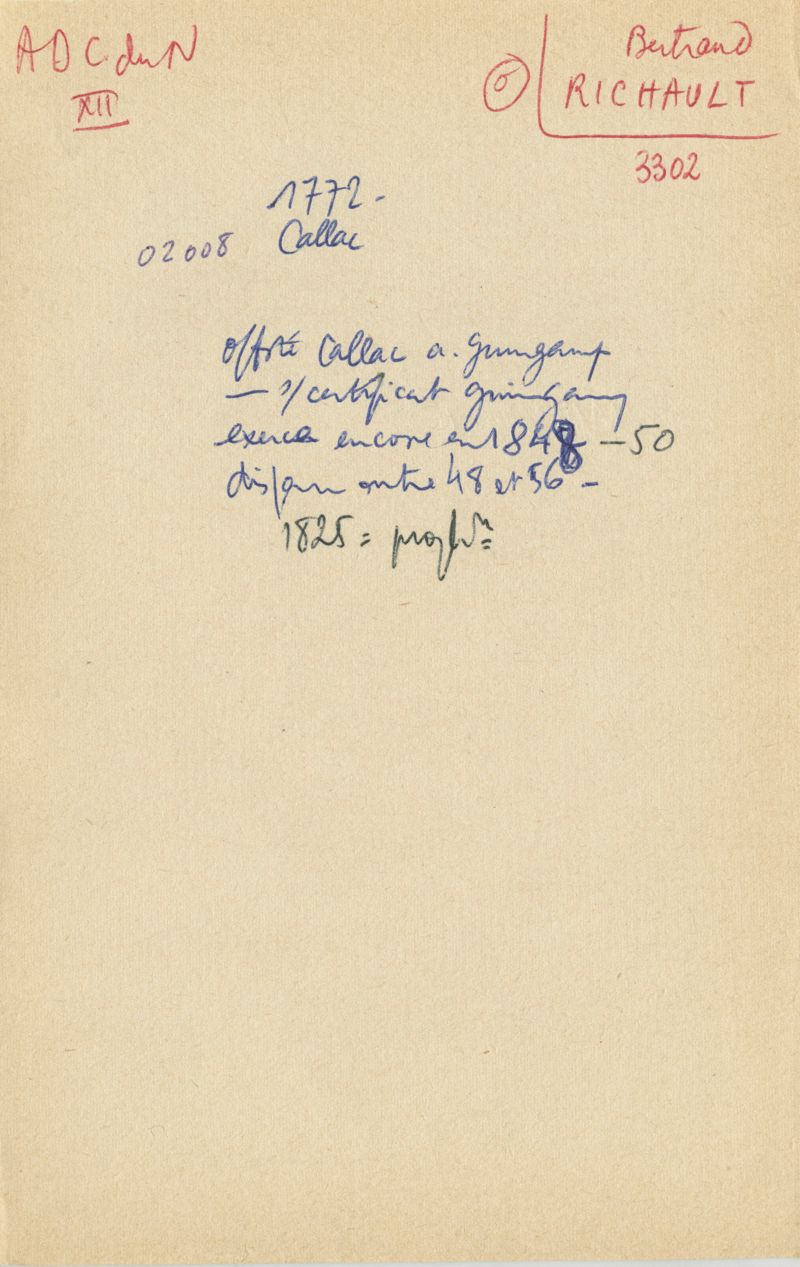 ADC du N
XII
Bertrand
σ RICHAULT
3302
1772 -
02008 Callac
Callac a. Guingamp
— s/certificat Guingamp
exerce encore en 1848 – 50
disparu entre 48 et 56 –
1825 =